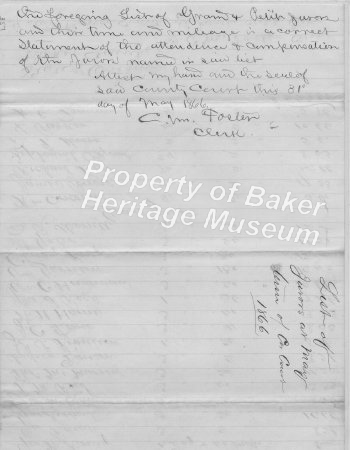 The foregoing List of Grand & Petit Jurors
and their time and mileage is a correct
statement of the attendence & compensation
of the Jurors named in said list
Attest my hand and the seal of
said County Court this 31st
day of May 1866
C. M. Foster
Clerk
Property of Baker
Heritage Museum
List of
Jurors at May
Term of Co Court
1866